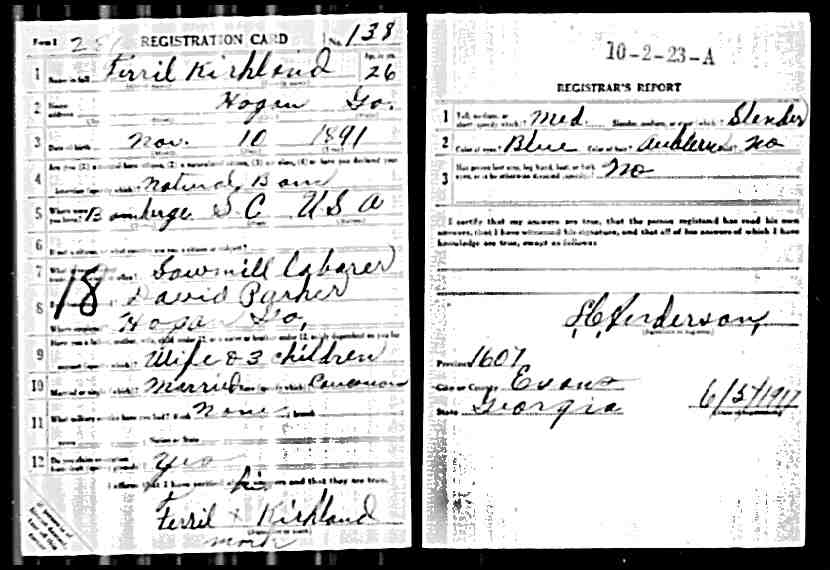 Form 1 REGISTRATION CARD No. 138
1 Name in full Ferril Kirkland Age, in yrs. 26
2 Home address Hagan Ga.
3 Date of birth Nov. 10 1891
4 Are you (1) a natural-born citizen, (2) a naturalized citizen, (3) an alien, (4) or have you declared your
intention (specify which)? Natural Born
5 Where were you born? S C U S A
6 If not a citizen, of what country are you a citizen or subject?
7 Sawmill Laborer
18
8 David Parker
Where employed? Ga,
9 Have you a father, mother, wife, child under 12, or a sister or brother under 12, solely dependent on you for
support (specify which)? Wife & 3 children
10 Married or single (which)? Married Race (specify which)? Caucasian
11 What military service have you had? Rank None branch
years Nation or State
12 Do you claim exemption from draft (specify grounds)? Yes
I affirm that I have verified above answers and that they are true.
his
Ferril x Kirkland
mark
10-2-23-A
REGISTRAR'S REPORT
1 Tall, medium, or short (specify which)? Med. Slender, medium, or stout (which)? Slender
2 Color of eyes? Blue Color of hair? Bald? No
3 Has person lost arm, leg, hand, foot, or both eyes, or is he otherwise disabled (specify)? No
I certify that my answers are true, that the person registered has read his own
answers, that I have witnessed his signature, and that all of his answers of which I have
knowledge are true, except as follows:
Henderson,
Precinct 1607
City or County Evans
State Georgia 6/5/1917